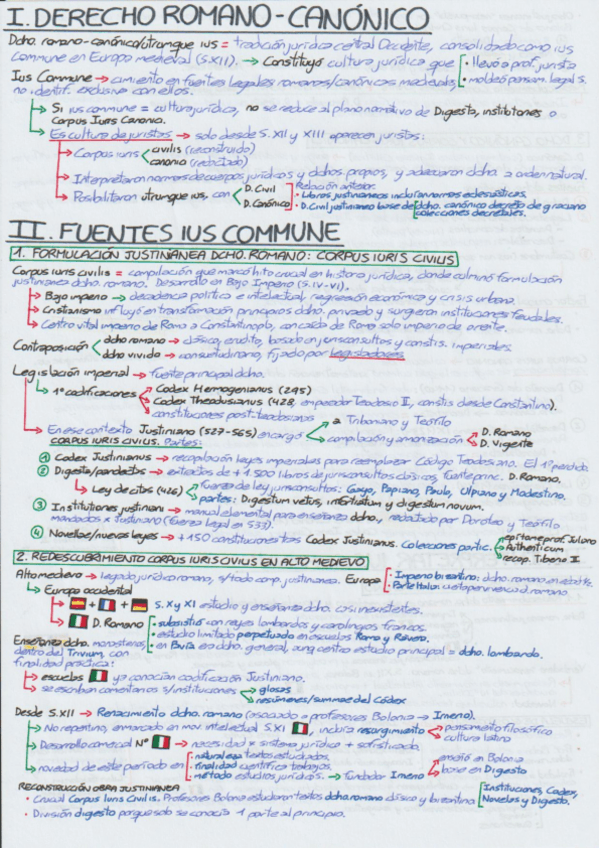 I. DERECHO ROMANO-CANÓNICO
Dcho. romano-canónico/utrumque ius = tradición jurídica central Occidente, consolidado como ius
commune en Europa medieval (S.XII). → Constituyó cultura jurídica que · llevó a prof. jurista
Ius Commune → cimiento en fuentes legales romanos/canónicas medievales · moldeó pensam. legal s.
no identif. exclusiva con ellos.
Si ius commune = cultura jurídica, no se reduce al plano normativo de Digesta, institutiones o
Corpus Iuris Canonia.
Es cultura de juristas → solo desde S. XII y XIII aparecen juristas:
Corpus iuris civilis (reconstruido)
canonia (redactado)
Interpretaron normas de cuerpos jurídicos y dchos. propios, y adecuaron dcho. a orden natural.
Posibilitaron utrumque ius, con D. Civil Relación anterior
· Libros justinianeos incluían normas eclesiásticas.
D. Canónico · D. Civil justinianeo base de dcho. canónico decreto de graciano
colecciones decretales.
II. FUENTES IUS COMMUNE
1. FORMULACIÓN JUSTINIANEA DCHO. ROMANO: CORPUS IURIS CIVILIS
Corpus iuris civilis = compilación que marcó hito crucial en historia jurídica, donde culminó formulación
justinianea dcho. romano. Desarrollo en Bajo Imperio (S. IV-VI).
Bajo imperio → decadencia política e intelectual, regresión económica y crisis urbana.
Cristianismo influyó en transformación principios dcho. privado y surgieron instituciones feudales.
Centro vital imperio de Roma a Constantinopla, con caída de Roma solo imperio de oriente.
Contraposición dcho romano → clásico, erudito, basado en jurisconsultos y constits. imperiales.
dcho vivido → consuetudinario, fijado por legisladores
Legislación imperial → fuente principal dcho.
1ª codificaciones Codex Hermogenianus (295)
Codex Theodosianus (428, emperador Teodosio II, constits desde Constantino).
constituciones post-teodosianas
En ese contexto Justiniano (527-565) encargó a Triboniano y Teófilo
compilación y armonización D. Romano
D. Vigente
CORPUS IURIS CIVILIS. Partes:
1 Codex Justinianus → recopilación leyes imperiales para reemplazar Código Teodosiano. El 1º perdido.
2 Digesta/pandectas → extractos de +1.500 libros de jurisconsultos clásicos, fuente princ. D. Romano.
Ley de citas (426) fuerza de ley jurisconsultos: Gayo, Papiano, Paulo, Ulpiano y Modestino.
partes: Digestum vetus, infortiatum y digestum novum.
3 Institutiones justiniani → manual elemental para enseñanza dcho., redactado por Doroteo y Teófilo
mandados x Justiniano (fuerza legal en 533).
4 Novellae/nuevas leyes → +150 constituciones tras Codex Justinianus. Colecciones partic. epitome prof. Juliano
Authenticum
recop. Tiberio II
2. REDESCUBRIMIENTO CORPUS IURIS CIVILIS EN ALTO MEDIEVO
Alto medievo → legado jurídico romano, s/todo comp. justinianea. Europa · Imperio bizantino: dcho. romano en
· Parte Italia: cuatro pervivencia d. romano.
Europa occidental
+ + S. X y XI estudio y enseñanza dcho. casi inexistentes.
D. Romano · subsistió con reyes lombardos y carolingios francos.
· estudio limitado perpetuado en escuelas Roma y Rávena.
Enseñanza dcho. monasterios · en Pavía era dcho. general, aunq centro estudio principal = dcho. lombardo.
dentro del Trivium, con
finalidad práctica:
escuelas ya conocían codificación Justiniano.
se escriben comentarios s/instituciones glosas
resúmenes/summae del Códex
Desde S.XII → Renacimiento dcho. romano (asociado a profesores Bolonia → Irnerio).
No repentino, enmarcado en mov. intelectual S.XI , incluía resurgimiento pensamiento filosófico
cultura latina
Desarrollo comercial Nº → necesidad x sistema jurídico + sofisticado.
novedad de este periodo en · naturaleza textos estudiados.
· finalidad científica trabajos.
· método estudios jurídicos. → fundador Irnerio enseñó en Bolonia
base en Digesto
RECONSTRUCCIÓN OBRA JUSTINIANEA
· Crucial Corpus Iuris Civilis. Profesores Bolonia estudiaron textos dcho romano clásico y bizantino Instituciones, Codex,
Novelas y Digesto.
· División digesto porque solo se conocía 1 parte al principio.